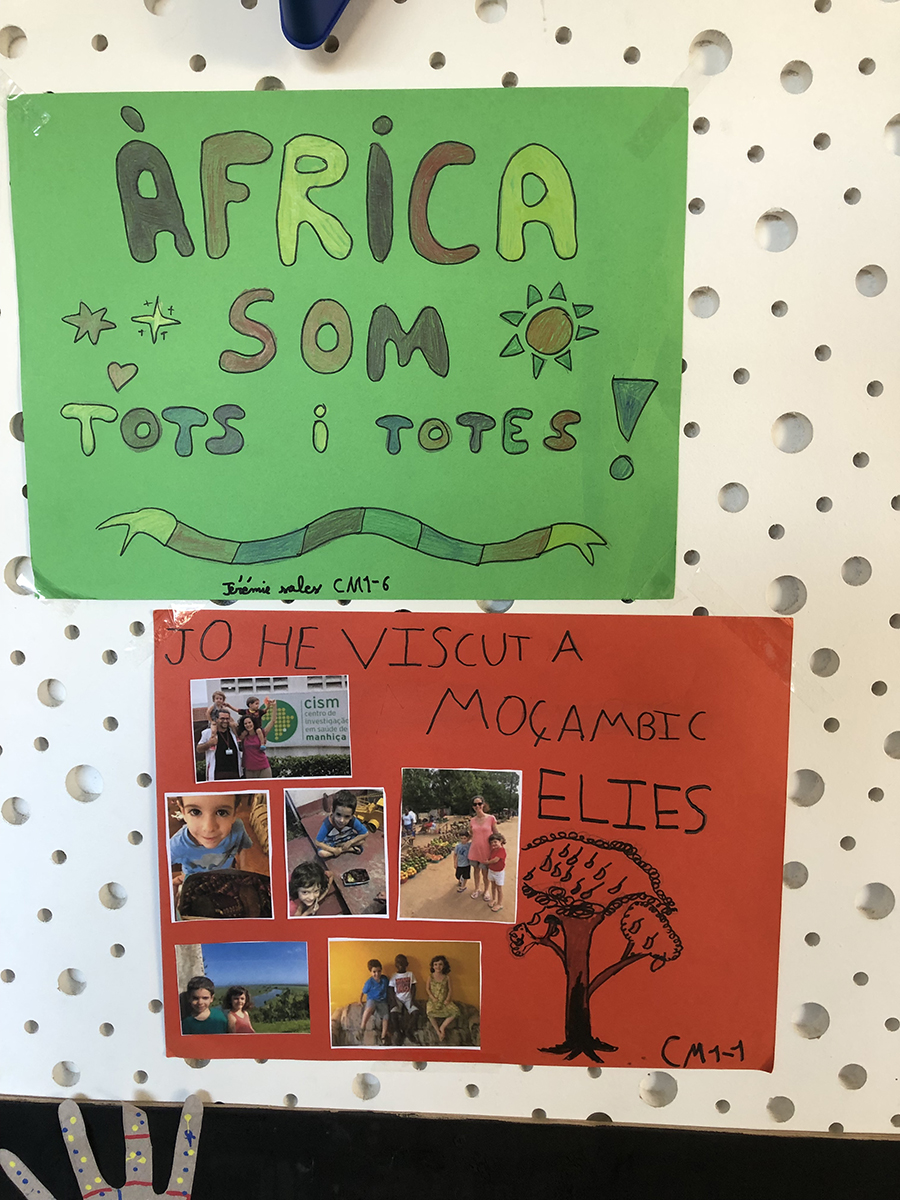 ÀFRICA
SOM
TOTS i TOTES!
Jérémie sales CM1-6
JO HE VISCUT A
MOÇAMBIC
ELIES
cism
centro de
investigação
em saúde de
manhiça
CM1-1